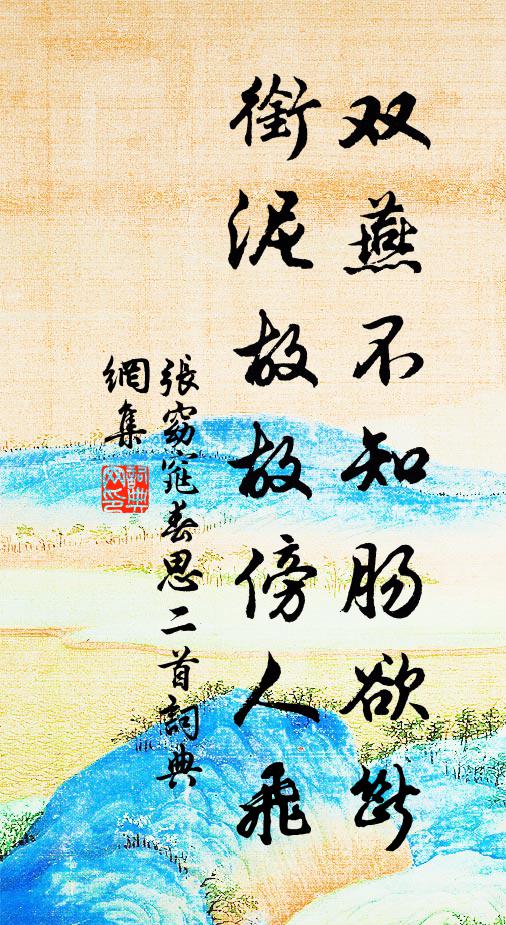 双燕不知肠欲断
銜泥故故傍人飛
張窈窕春思二首詞典
網集